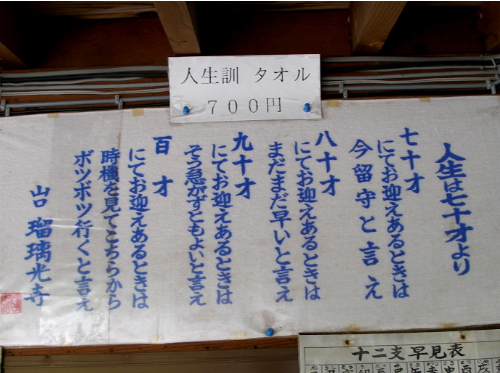 人生訓 タオル
700円
人生は七十才より
七十才
にてお迎えあるときは
今留守と言え
八十才
にてお迎えあるときは
まだまだ早いと言え
九十才
にてお迎えあるときは
そう急がずともよいと言え
百才
にてお迎えあるときは
時機を見てこちらから
ボツボツ行くと言え
山口 瑠璃光寺
十二支早見表